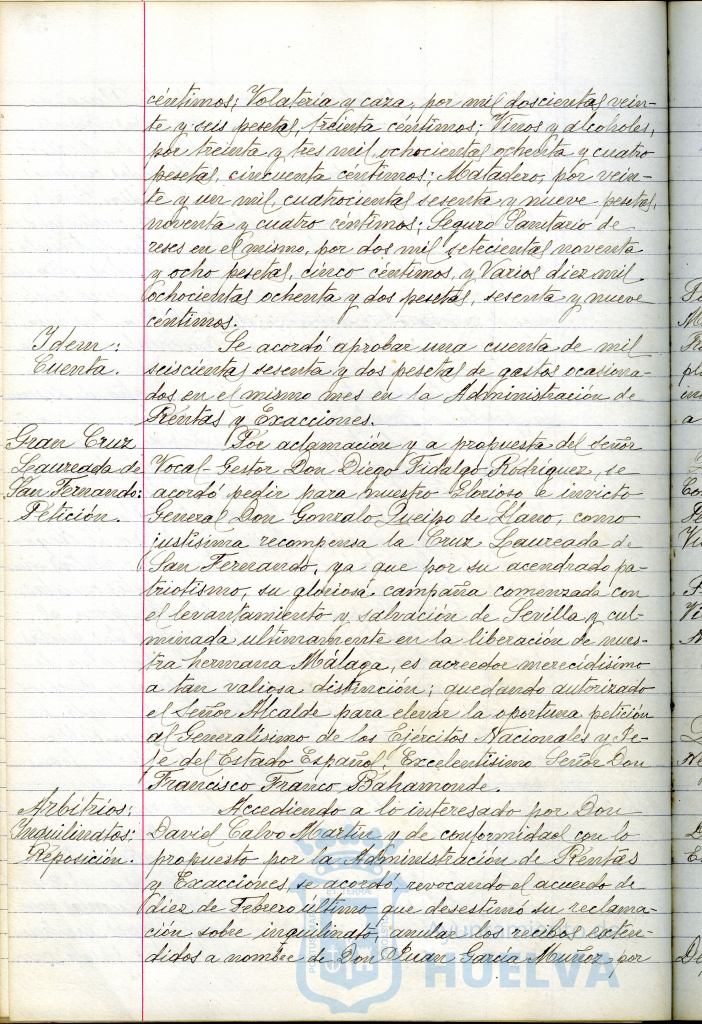 céntimos; Volatería y caza, por mil doscientas vein-
te y seis pesetas, treinta céntimos; Vinos y alcoholes,
por treinta y tres mil, ochocientas ochenta y cuatro
pesetas, cincuenta céntimos; Matadero, por vein-
te y un mil, cuatrocientas sesenta y nueve pesetas,
noventa y cuatro céntimos; Seguro Sanitario de
reses en el mismo, por dos mil setecientas noventa
y ocho pesetas, cinco céntimos, y Varios diez mil
ochocientas ochenta y dos pesetas, sesenta y nueve
céntimos.
Idem:
Cuenta.
Se acordó aprobar una cuenta de mil
seiscientas sesenta y dos pesetas de gastos ocasiona-
dos en el mismo mes en la Administración de
Rentas y Exacciones.
Gran Cruz
Laureada de
San Fernando:
Petición.
Por aclamación y a propuesta del señor
Vocal-Gestor Don Diego Fidalgo Rodríguez, se
acordó pedir para nuestro Glorioso e invicto
General Don Gonzalo Queipo de Llano, como
justísima recompensa la Cruz Laureada de
San Fernando, ya que por su acendrado pa-
triotismo, su gloriosa campaña comenzada con
el levantamiento y salvación de Sevilla y cul-
minada ultimamente en la liberación de nues-
tra hermana Málaga, es acreedor merecidísimo
a tan valiosa distinción; quedando autorizado
el Señor Alcalde para elevar la oportuna petición
al Generalísimo de los Ejércitos Nacionales y Je-
fe del Estado Español, Excelentísimo Señor Don
Francisco Franco Bahamonde.
Arbitrios:
Inquilinatos:
Reposición.
Accediendo a lo interesado por Don
David Calvo Martín y de conformidad con lo
propuesto por la Administración de Rentas
y Exacciones, se acordó, revocando el acuerdo de
diez de Febrero último que desestimó su reclama-
ción sobre inquilinato, anular los recibos exten-
didos a nombre de Don Juan García Muñoz, por
HUELVA